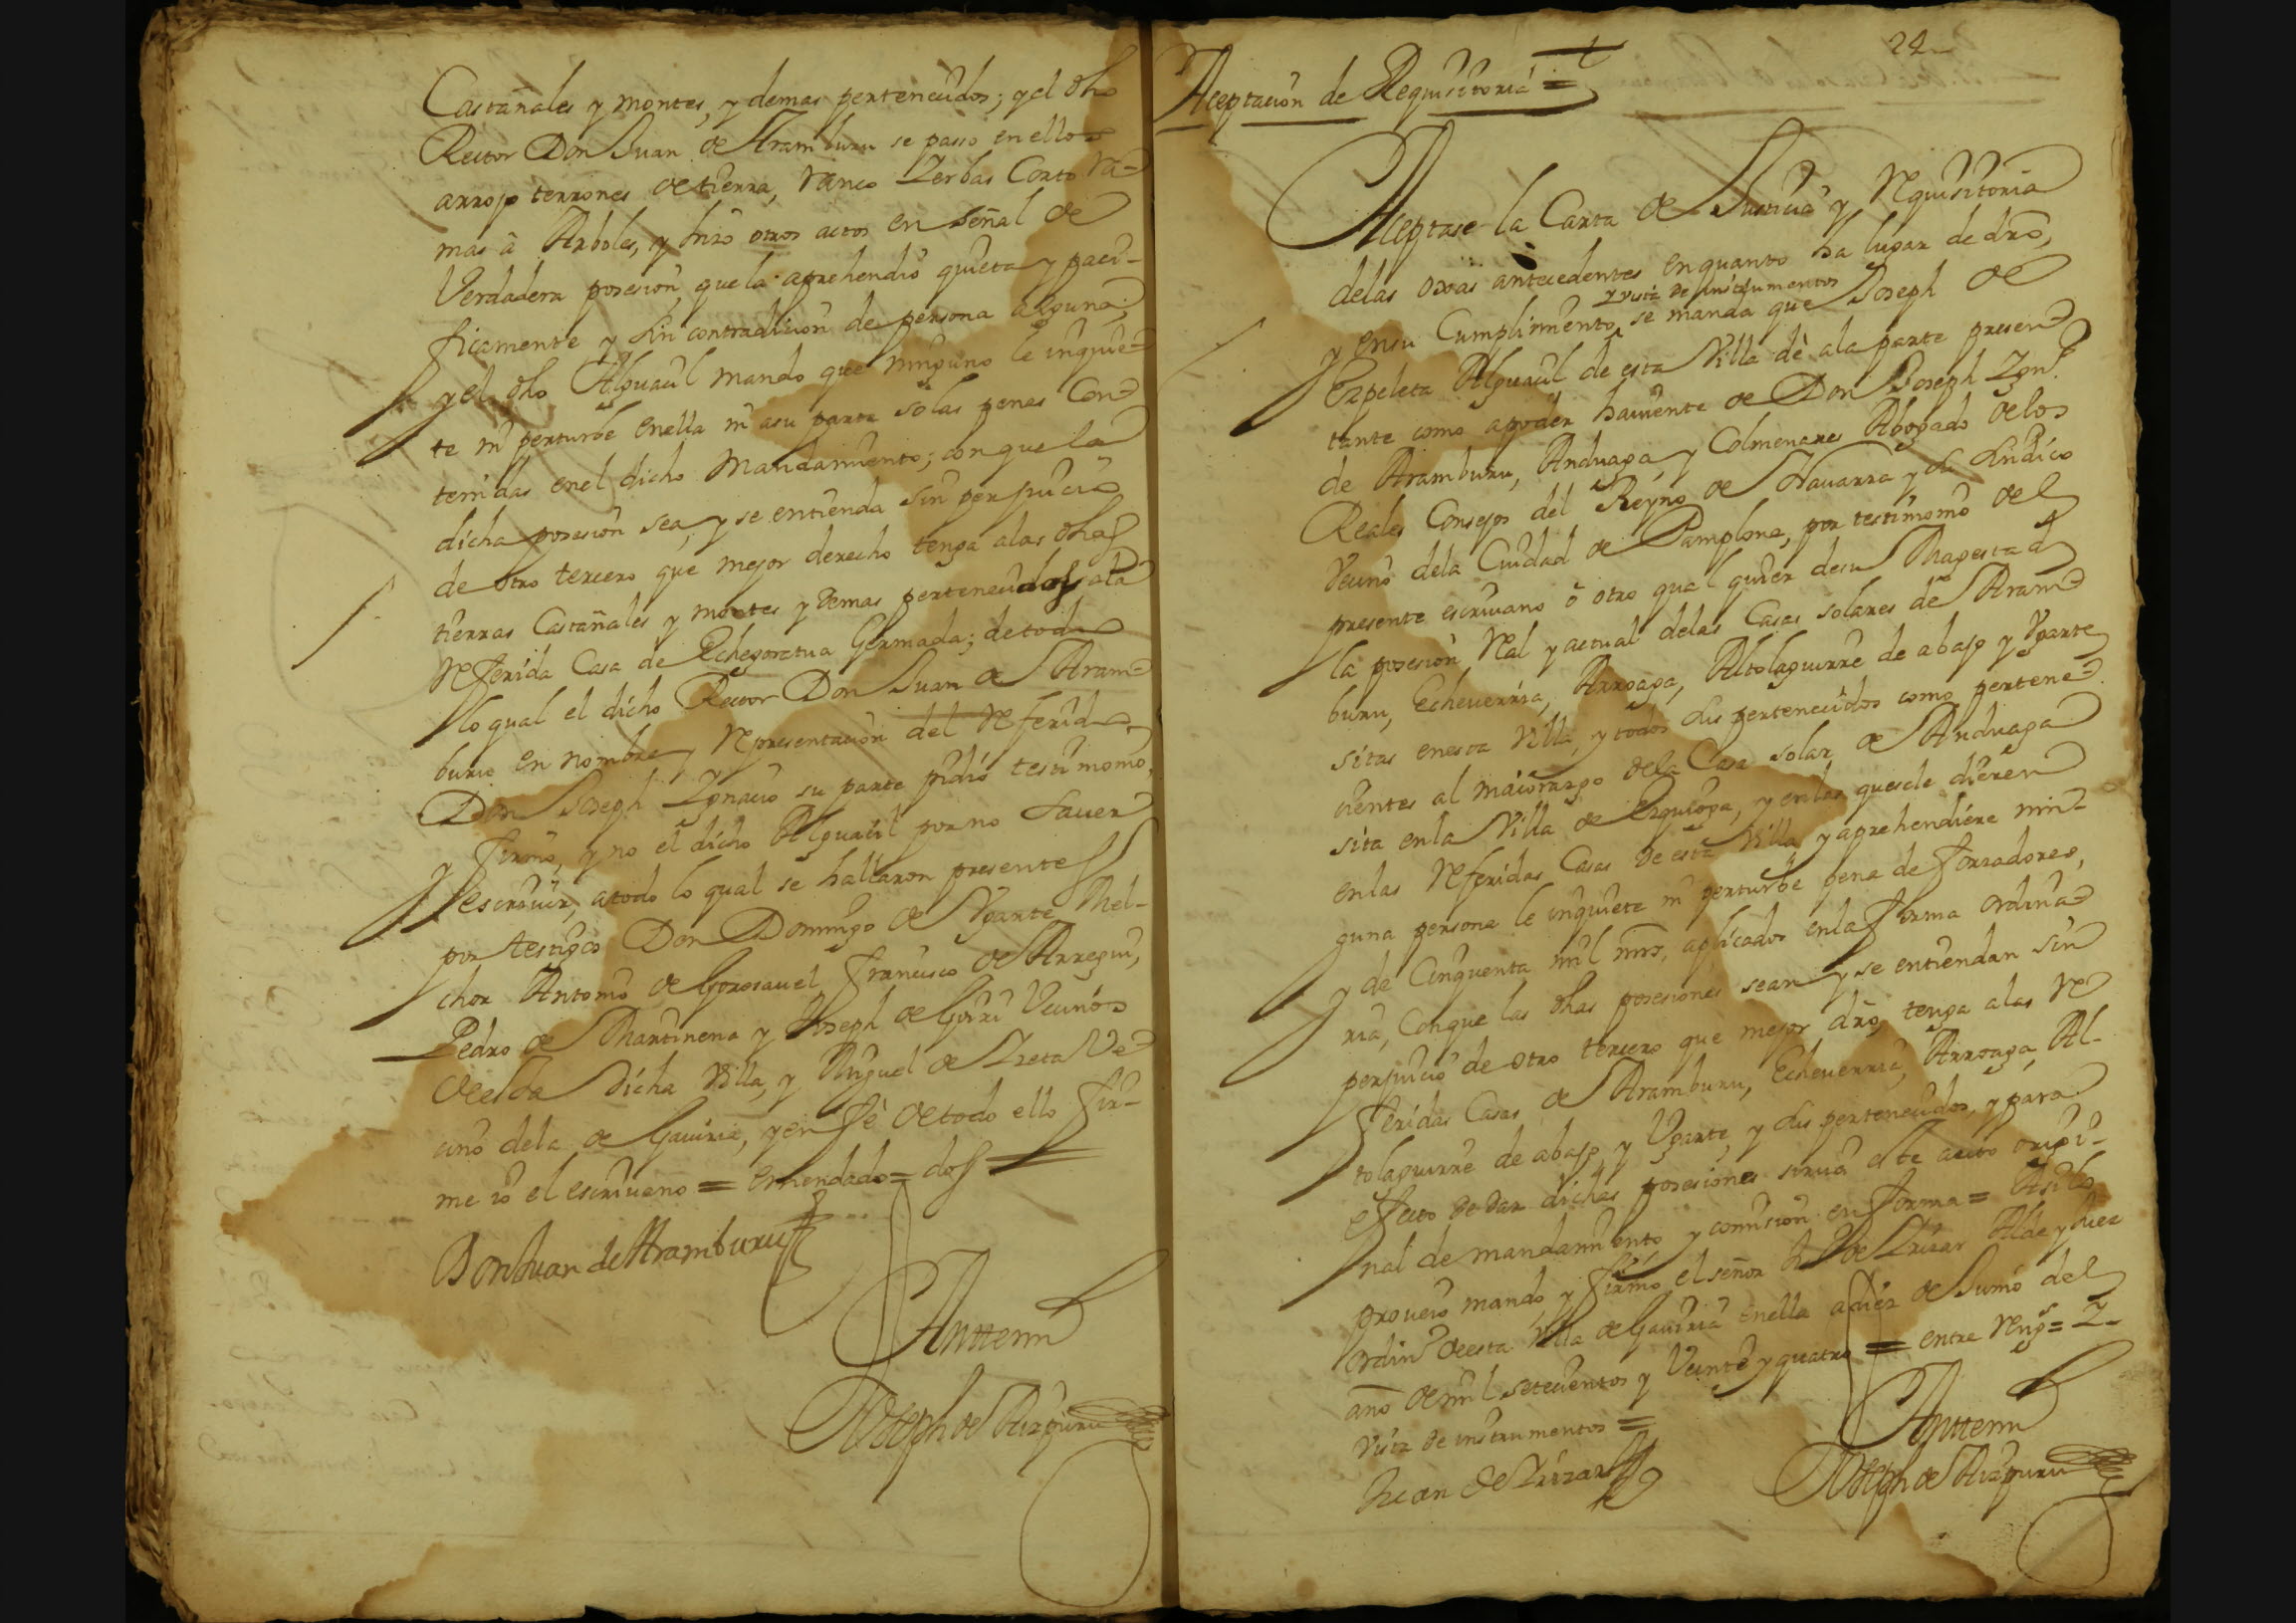 Castañales y montes, y demas pertenecidos; y el dho
Rector Don Juan de Aramburu se passo en ellos
arrojo terrones de tierra, ranco Yerbas Corto ra-
mas â Arboles, y hizo otros actos en señal de
Verdadera posesion, que la aprehendio quieta y paci-
ficamente y sin contradicion de persona alguna;
y el dho Alguacil mando que ninguno le inquie-
te ni perturbe en ella ni asu parte solas penas Con-
tenidas enel dicho Mandamiento; con que la
dicha posesion sea, y se entienda sin perjuicio
de otro tercero que mejor derecho tenga alas dhas
tierras Castañales y montes y demas pertenecidos ala
Referida Casa de Echegoretua Germada; de todo
lo qual el dicho Rector Don Juan de Aram-
buru en nombre y Representacion del Referido
Don Joseph Ygnacio su parte pidio testimonio,
y firmo, y no el dicho Alguacil por no saver
escrivir, atodo lo qual se hallaron presentes
por testigos Don Domingo de Ugarte Mel-
chor Antonio de Gorosavel Francisco de Arregui,
Pedro de Martinena y Joseph de Goiri Vecinos
de esta dicha Villa, y Miguel de Ureta Ve-
cino dela de Gaviria, y en fè de todo ello fir-
me io el escrivano = emendado = dos =
Don Juan de Aramburu
Anttemi
Joseph de Aizpuru
24
Aceptacion de Requisitoria =
Aceptase la Carta de Justicia y Requisitoria
delas oxas antecedentes en quanto ha lugar de dro,
y vista de instrumentos
y ensu Cumplimiento, se manda que Joseph de
Ezpeleta Alguacil de esta Villa dè ala parte presen-
tante como apoder haviente de Don Joseph Ygn.º
de Aramburu, Anduaga, y Colmenares Abogado delos
Reales Consejos del Reyno de Navarra y su Sindico
Vecino dela Ciudad de Pamplona, por testimonio del
presente escrivano ô otro qual quier desu Magestad
la posesion Real y actual delas Casas solares de Aram-
buru, Echeverria, Arroaga, Altolaguirre de abajo y Ugarte
sitas enesta Villa, y todos sus pertenecidos como pertene-
cientes al maiorazgo dela Casa solar de Anduaga
sita enla Villa de Ezquioga, y en las quesele dieren
enlas Referidas Casas de esta Villa y aprehendiere nin-
guna persona le inquiete ni perturbe pena de forzadores,
y de Cinquenta mil mrs, aplicados enla forma ordina-
ria, Conque las dhas posesiones sean y se entiendan sin
perjuicio de otro tercero que mejor dro, tenga alas Re-
feridas Casas de Aramburu, Echeverria, Arroaga, Al-
tolaguirre de abajo y Ugarte, y sus pertenecidos, y para
efecto de dar dichas posesiones sirva este auto origi-
nal de mandamiento y comision en forma = Asi lo
proveio mando, y firmo, el señor Juº de Irizar Alde y Juez
ordinº de esta Villa de Gaviria enella a diez de Junio del
año de mil setecientos y Veinte y quatro = entre Reng.s = Y
vista de instrumentos =
Juan de Irizar
Anttemi
Joseph de Aizpuru